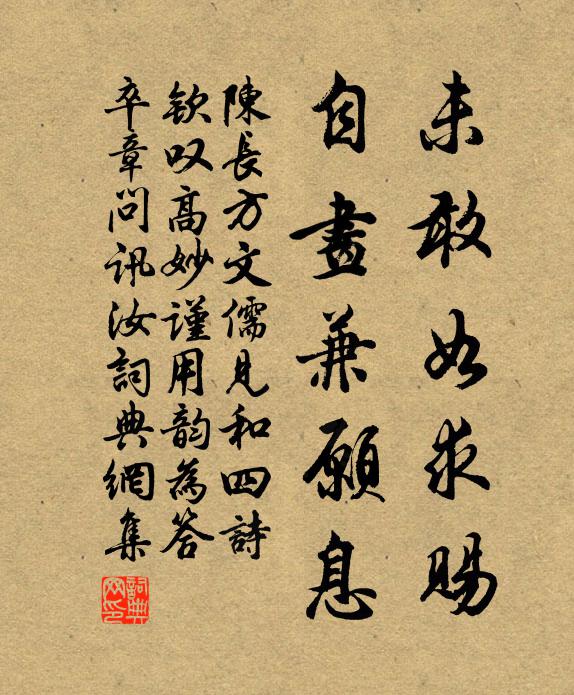 未敢如求賜
自畫兼願息
陳長方文儒見和四詩
欽叹高妙謹用韵為答
卒章問訊汝詞典網集
詞典
网印